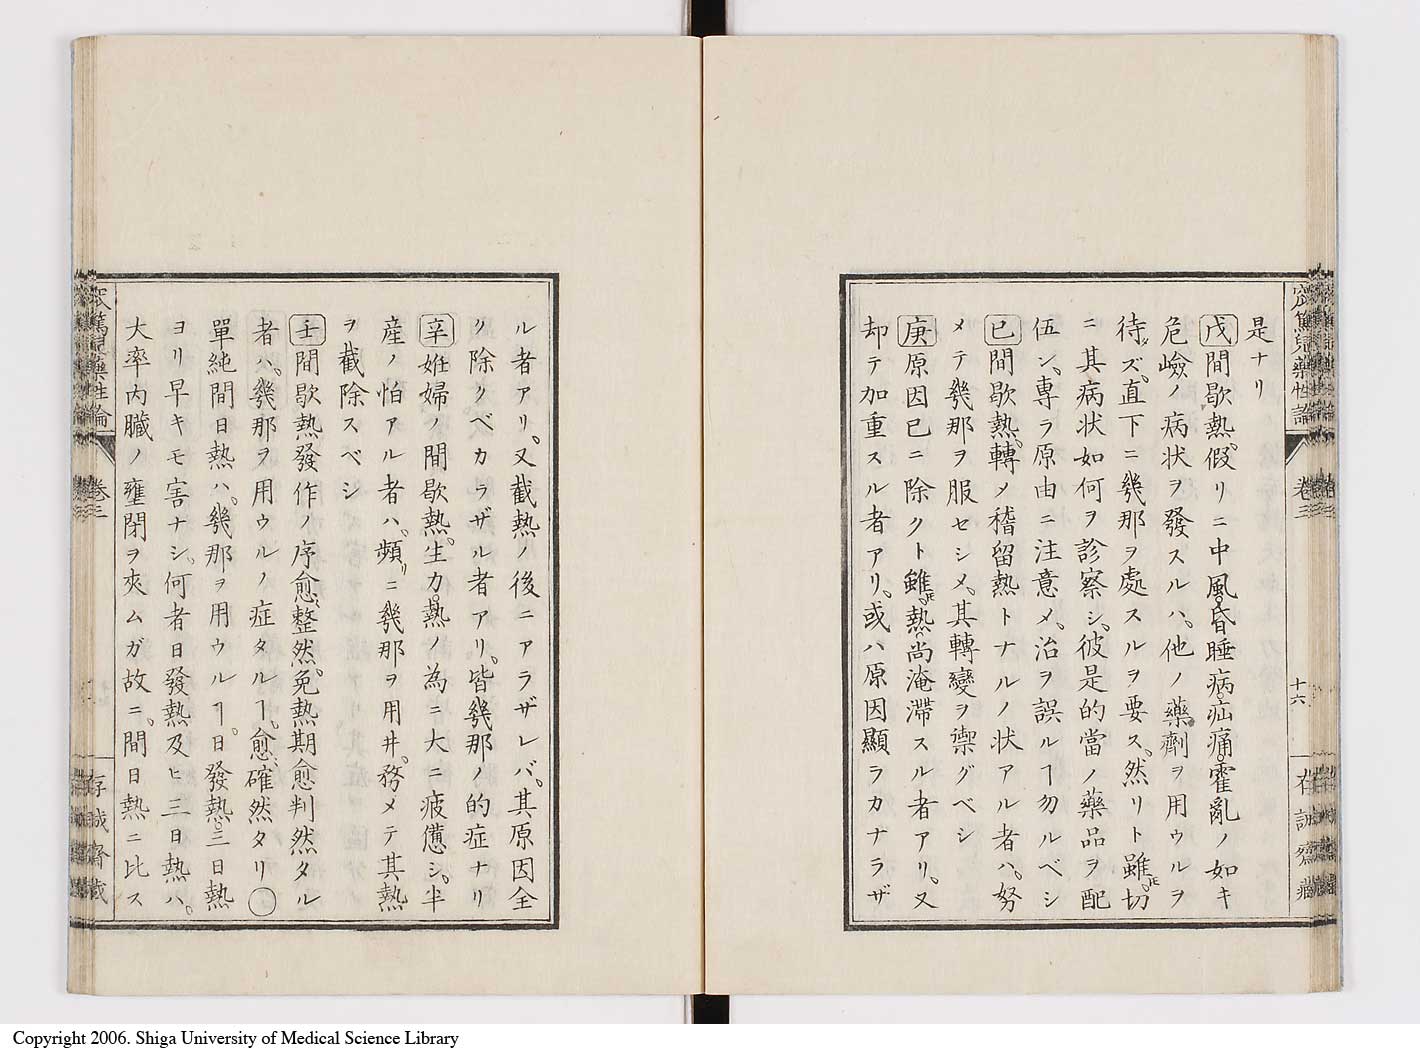 窊篤兒藥性論 卷三 十六 存誠齋藏
是ナリ
戊間歇熱。假リニ中風。昏睡病。疝痛。霍亂ノ如キ
危嶮ノ病状ヲ發スルハ。他ノ藥劑ヲ用ウルヲ
待ズ。直下ニ幾那ヲ處スルヲ要ス。然リト雖モ。切
ニ其病状如何ヲ診察シ。彼是的當ノ藥品ヲ配
伍シ。專ラ原由ニ注意メ。治ヲ誤ルヿ勿ルベシ
已間歇熱。轉メ稽留熱トナルノ状アル者ハ。努
メテ幾那ヲ服セシメ。其轉變ヲ禦グベシ
庚原因已ニ除クト雖モ。熱尚淹滯スル者アリ。又
却テ加重スル者アリ。或ハ原因顯ラカナラザ
ル者アリ。又截熱ノ後ニアラザレバ。其原因全
ク除クベカラザル者アリ。皆幾那ノ的症ナリ
辛姙婦ノ間歇熱。生力。熱ノ為ニ大ニ疲憊シ。半
産ノ怕アル者ハ。頻リニ幾那ヲ用井。務メテ其熱
ヲ截除スベシ
壬間歇熱發作ノ序愈整然。免熱期愈判然タル
者ハ。幾那ヲ用ウルノ症タルヿ。愈確然タリ〇
單純間日熱ハ。幾那ヲ用ウルヿ。日發熱。三日熱
ヨリ早キモ害ナシ。何者日發熱及ヒ三日熱ハ。
大率内臓ノ壅閉ヲ夾ムガ故ニ。間日熱ニ比ス
窊篤兒藥性論 卷三 存誠齋藏
Copyright 2006. Shiga University of Medical Science Library